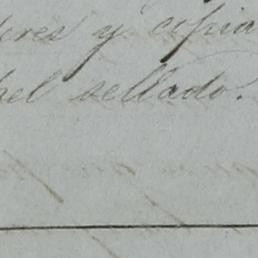 eres y copia
pel sellado.